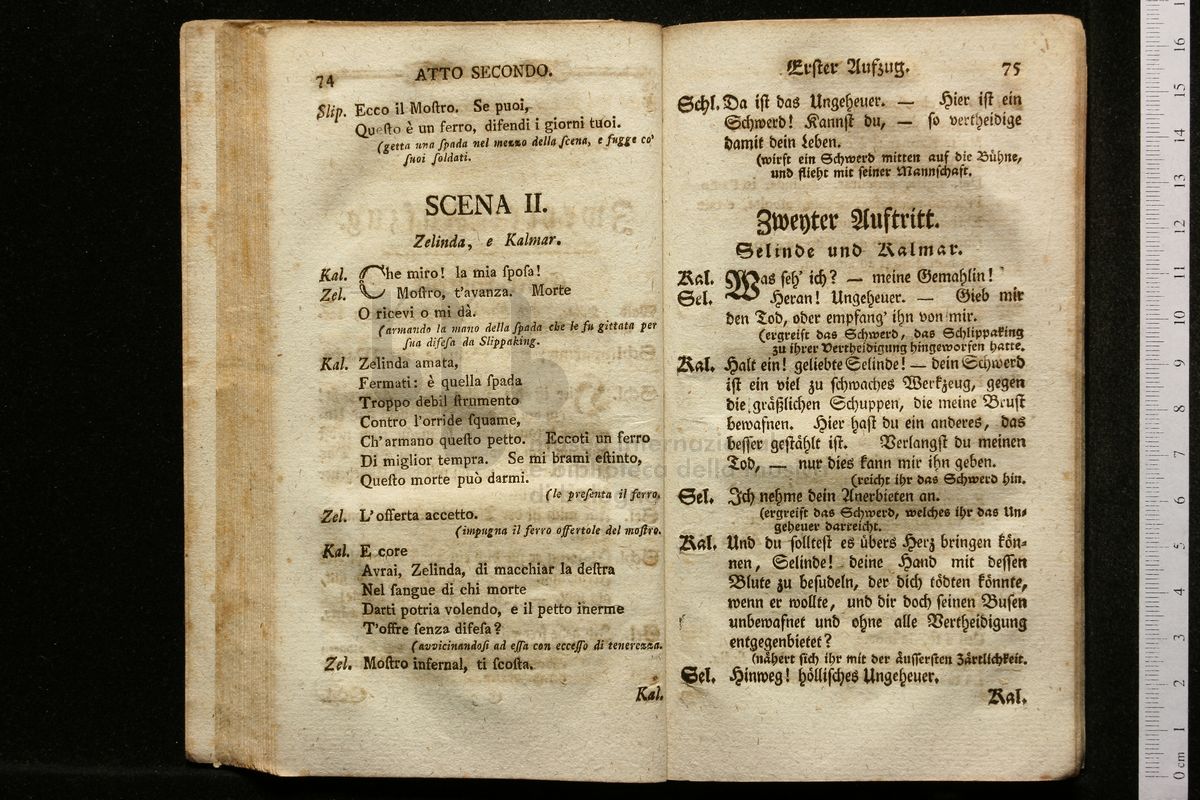 74 ATTO SECONDO.
Slip. Ecco il Moſtro. Se puoi,
Queſto è un ferro, difendi i giorni tuoi.
(getta una ſpada nel mezzo della ſcena, e fugge co'
ſuoi ſoldati.
SCENA II.
Zelinda, e Kalmar.
Kal. Che miro! la mia ſpoſa!
Zel. Moſtro, t'avanza. Morte
O ricevi o mi dà.
(armando la mano della ſpada che le fu gittata per
ſua difeſa da Slippaking.
Kal. Zelinda amata,
Fermati: è quella ſpada
Troppo debil ſtrumento
Contro l'orride ſquame,
Ch'armano queſto petto. Eccoti un ferro
Di miglior tempra. Se mi brami eſtinto,
Queſto morte può darmi.
(le preſenta il ferro.
Zel. L'offerta accetto.
(impugna il ferro offertole del moſtro.
Kal. E core
Avrai, Zelinda, di macchiar la deſtra
Nel ſangue di chi morte
Darti potria volendo, e il petto inerme
T'offre ſenza difeſa?
(avvicinandoſi ad eſſa con ecceſſo di tenerezza.
Zel. Moſtro infernal, ti ſcoſta.
Kal.
Erſter Aufzug. 75
Schl. Da iſt das Ungeheuer. — Hier iſt ein
Schwerd! Kannſt du, — ſo vertheidige
damit dein Leben.
(wirft ein Schwerd mitten auf die Bühne,
und flieht mit ſeiner Mannſchaft.
Zweyter Auftritt.
Selinde und Kalmar.
Kal. Was ſeh' ich? — meine Gemahlin!
Sel. Heran! Ungeheuer. — Gieb mir
den Tod, oder empfang' ihn von mir.
(ergreift das Schwerd, das Schlippaking
zu ihrer Vertheidigung hingeworfen hatte.
Kal. Halt ein! geliebte Selinde! — dein Schwerd
iſt ein viel zu ſchwaches Werkzeug, gegen
die gräßlichen Schuppen, die meine Bruſt
bewafnen. Hier haſt du ein anderes, das
beſſer geſtählt iſt. Verlangſt du meinen
Tod, — nur dies kann mir ihn geben.
(reicht ihr das Schwerd hin.
Sel. Ich nehme dein Anerbieten an.
(ergreift das Schwerd, welches ihr das Un⸗
geheuer darreicht.
Kal. Und du ſollteſt es übers Herz bringen kön⸗
nen, Selinde! deine Hand mit deſſen
Blute zu beſudeln, der dich tödten könnte,
wenn er wollte, und dir doch ſeinen Buſen
unbewafnet und ohne alle Vertheidigung
entgegenbietet?
(nähert ſich ihr mit der äuſſerſten Zärtlichkeit.
Sel. Hinweg! hölliſches Ungeheuer.
Kal.